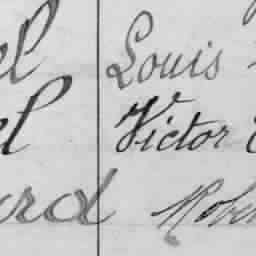 el Louis
el Victor
ard Rober